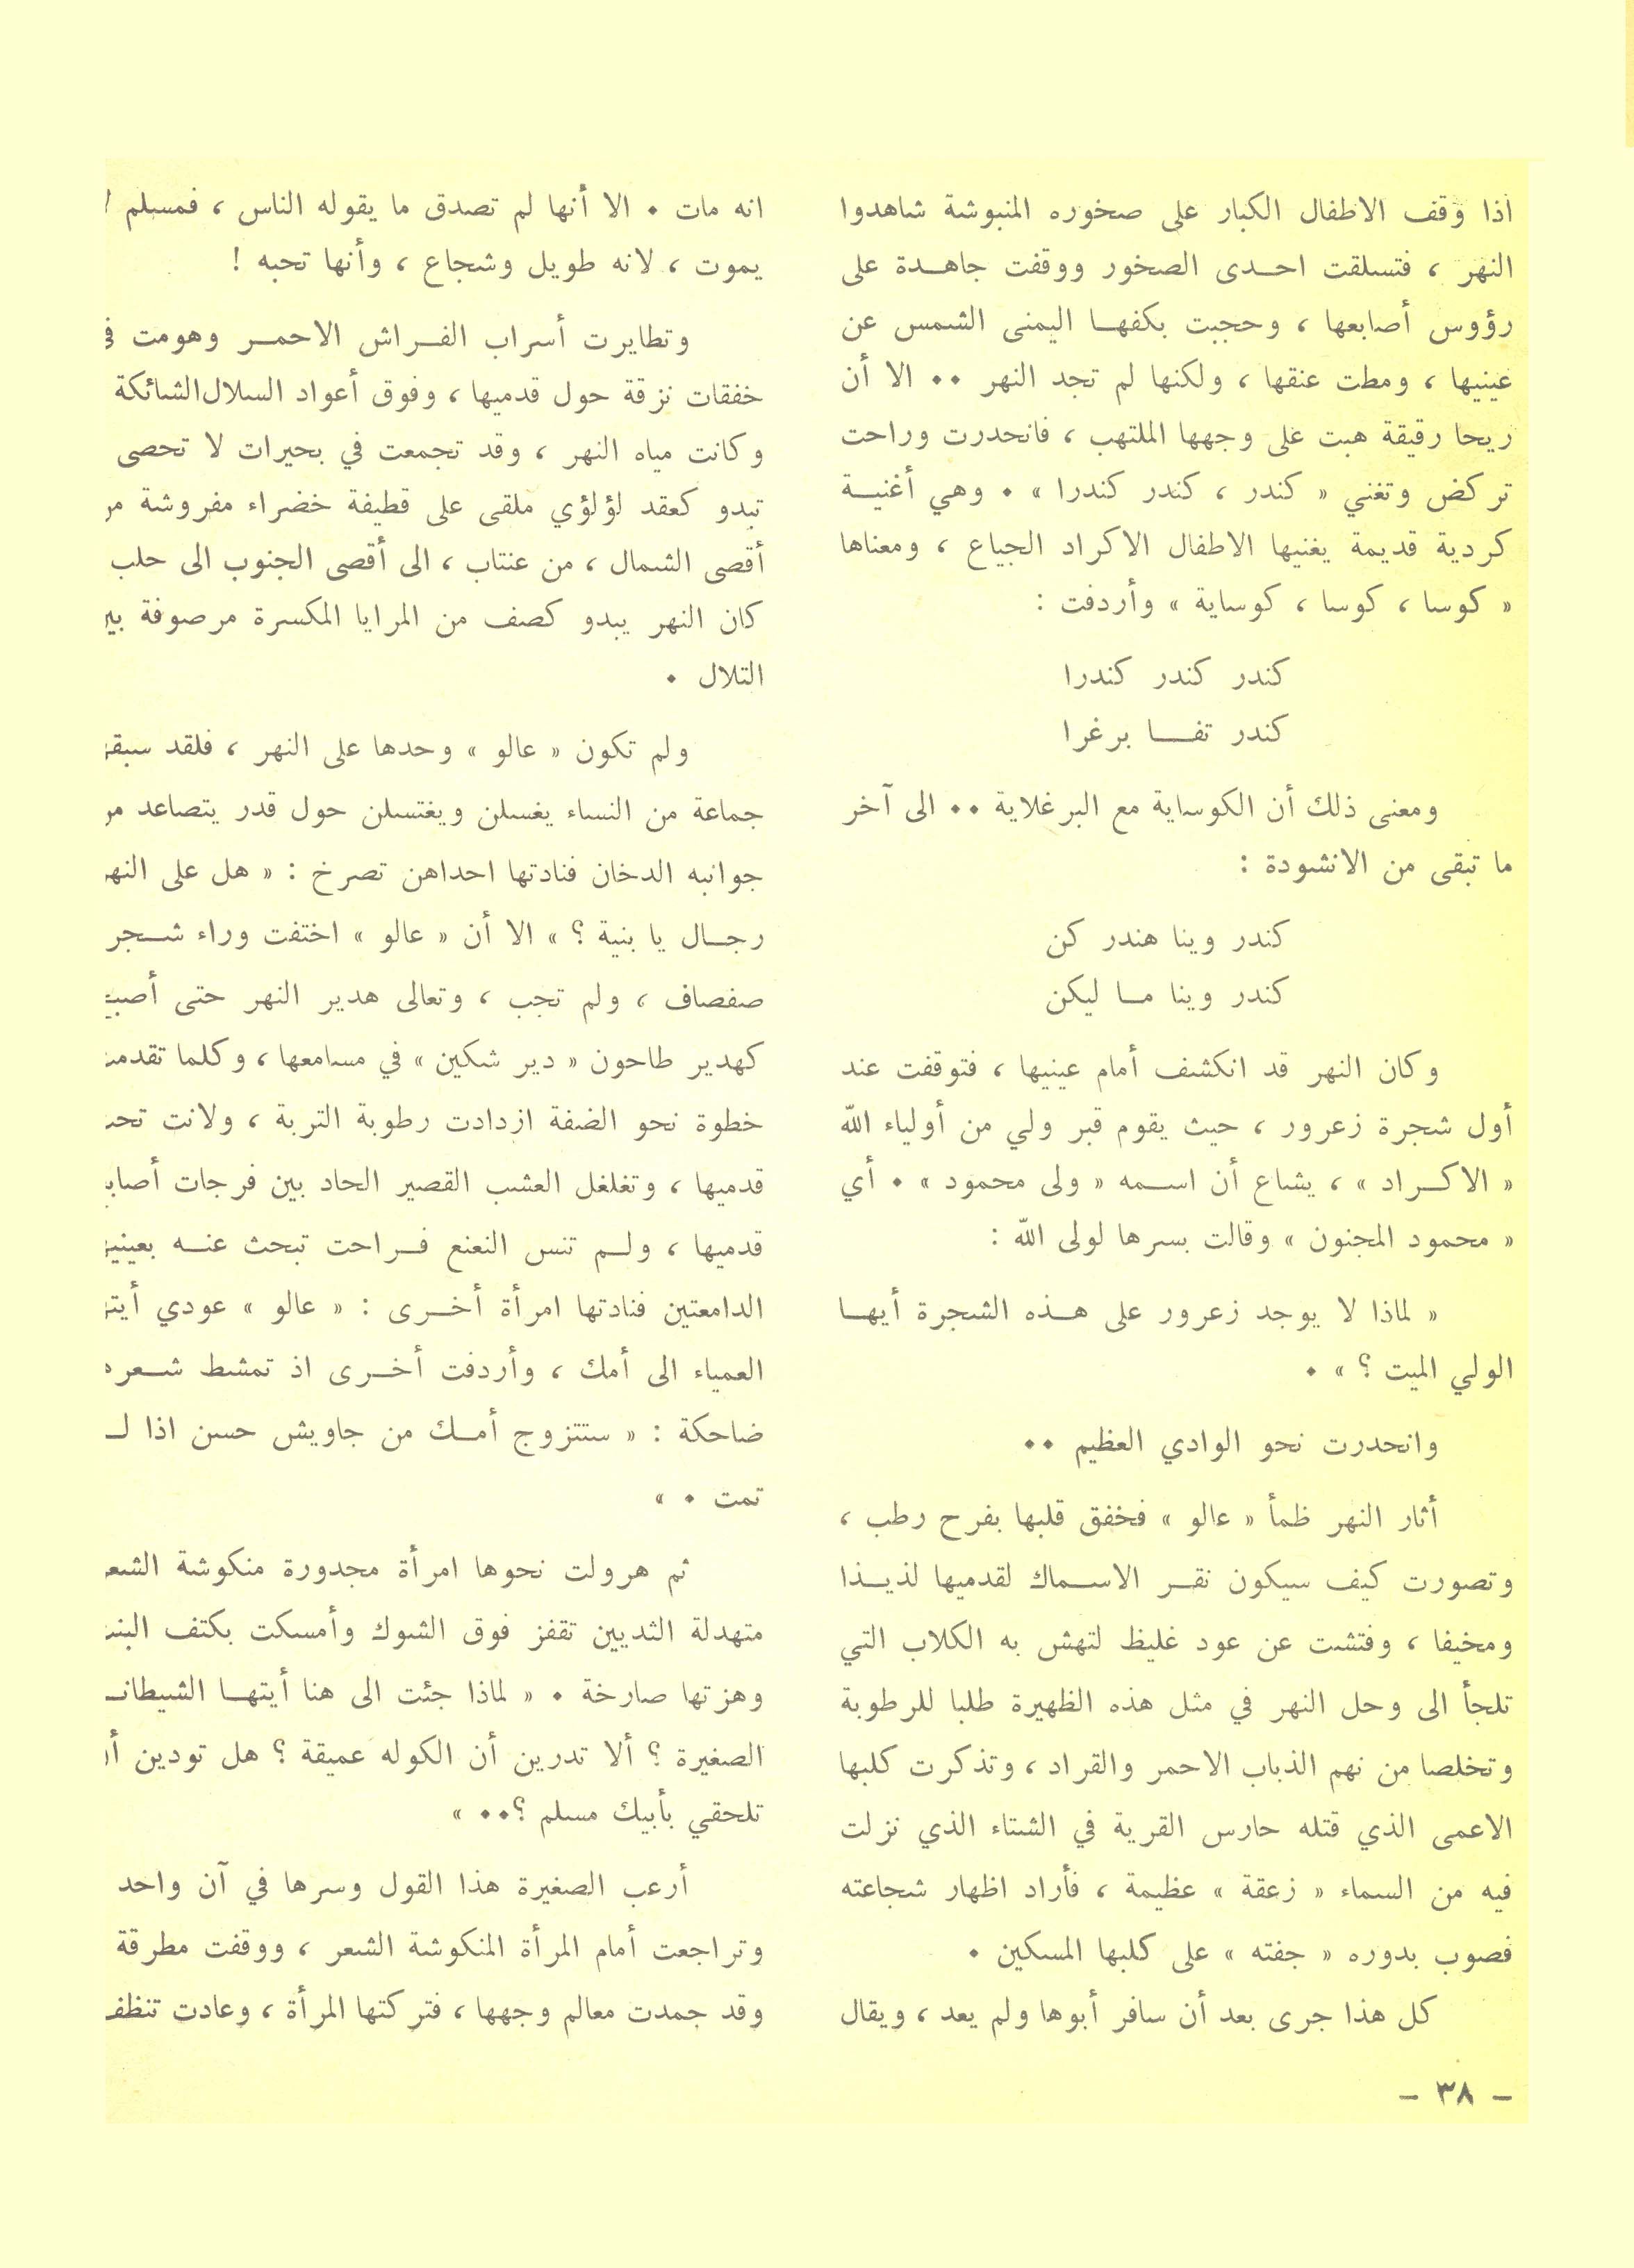 اذا وقف الاطفال الكبار على صخوره المنبوشة شاهدوا
النهر ، فتسلقت احـدى الصخور ووقفت جاهـدة على
رؤوس أصابعها ، وحجبت بكفهـا اليمنى الشمس عن
عينيها ، ومطت عنقها ، ولكنها لم تجد النهر ٠٠ الا أن
ريحا رقيقة هبت على وجهها الملتهب ، فانحدرت وراحت
تركض وتغني « كندر ، كندر كندرا » ٠ وهي أغنيـة
كردية قديمة يغنيها الاطفال الاكراد الجياع ، ومعناها
« كوسا ، كوسا ، كوساية » وأردفت :
كندر كندر كندرا
كندر تفـا برغرا
ومعنى ذلك أن الكوساية مع البرغلاية ٠٠ الى آخر
ما تبقى من الانشودة :
كندر وينا هندر كن
كندر وينا مـا ليكن
وكان النهر قد انكشف أمام عينيها ، فتوقفت عند
أول شجرة زعرور ، حيث يقوم قبر ولي من أولياء الله
« الاكـراد » ، يشاع أن اسـمه « ولى محمود » ٠ أي
« محمود المجنون » وقالت بسرها لولى الله :
« لماذا لا يوجد زعرور على هـذه الشجرة أيهـا
الولي الميت ؟ » ٠
وانحدرت نحو الوادي العظيم ٠٠
أثار النهر ظمأ « عالو » فخفق قلبها بفرح رطب ،
وتصورت كيف سيكون نقـر الاسـماك لقدميها لذيـذا
ومخيفا ، وفتشت عن عود غليظ لتهش به الكلاب التي
تلجأ الى وحل النهر في مثل هذه الظهيرة طلبا للرطوبة
وتخلصا من نهم الذباب الاحمر والقراد ، وتذكرت كلبها
الاعمى الذي قتله حارس القرية في الشتاء الذي نزلت
فيه من السماء « زعقة » عظيمة ، فأراد اظهار شجاعته
فصوب بدوره « جفته » على كلبها المسكين ٠
كل هذا جرى بعد أن سافر أبوها ولم يعد ، ويقال
انه مات ٠ الا أنها لم تصدق ما يقوله الناس ، فمسلم
يموت ، لانه طويل وشجاع ، وأنها تحبه !
وتطايرت أسراب الفـراش الاحمـر وهومت في
خفقات نزقة حول قدميها ، وفوق أعواد السلال الشائكة
وكانت مياه النهر ، وقد تجمعت في بحيرات لا تحصى
تبدو كعقد لؤلؤي ملقى على قطيفة خضراء مفروشة من
أقصى الشمال ، من عنتاب ، الى أقصى الجنوب الى حلب
كان النهر يبدو كصف من المرايا المكسرة مرصوفة بين
التلال ٠
ولم تكون « عالو » وحدها على النهر ، فلقد
جماعة من النساء يغسلن ويغتسلن حول قدر يتصاعد من
جوانبه الدخان فنادتها احداهن تصرخ : « هل على النهر
رجـال يا بنية ؟ » الا أن « عالو » اختفت وراء
صفصاف ، ولم تجب ، وتعالى هدير النهر حتى
كهدير طاحون « دير شكين » في مسامعها ، وكلما
خطوة نحو الضفة ازدادت رطوبة التربة ، ولانت
قدميها ، وتغلغل العشب القصير الحاد بين فرجات
قدميها ، ولـم تنس النعنع فـراحت تبحث عنـه
الدامعتين فنادتها امرأة أخـرى : « عالو » عودي
العمياء الى أمك ، وأردفت أخـرى اذ تمشط
ضاحكة : « ستتزوج أمـك من جاويش حسن اذا
تمت ٠ »
ثم هرولت نحوها امرأة مجدورة منكوشة
متهدلة الثديين تقفز فوق الشوك وأمسكت بكتف
وهزتها صارخة ٠ « لماذا جئت الى هنا أيتهـا
الصغيرة ؟ ألا تدرين أن الكوله عميقة ؟ هل تودين
تلحقي بأبيك مسلم ؟٠٠ »
أرعب الصغيرة هذا القول وسرها في آن واحد
وتراجعت أمام المرأة المنكوشة الشعر ، ووقفت مطرقة
وقد جمدت معالم وجهها ، فتركتها المرأة ، وعادت تنظف
– ٣٨ –